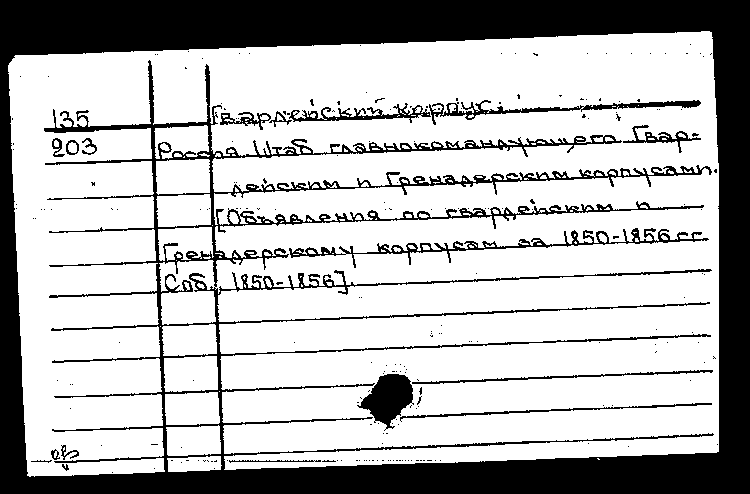 135 Гвардейский корпус.
203 Россия. Штаб главнокомандующего Гвар-
дейским и Гренадерским корпусами.
[Объявления по гвардейским и
Гренадерскому корпусам за 1850-1856 гг.
Спб., 1850-1856].